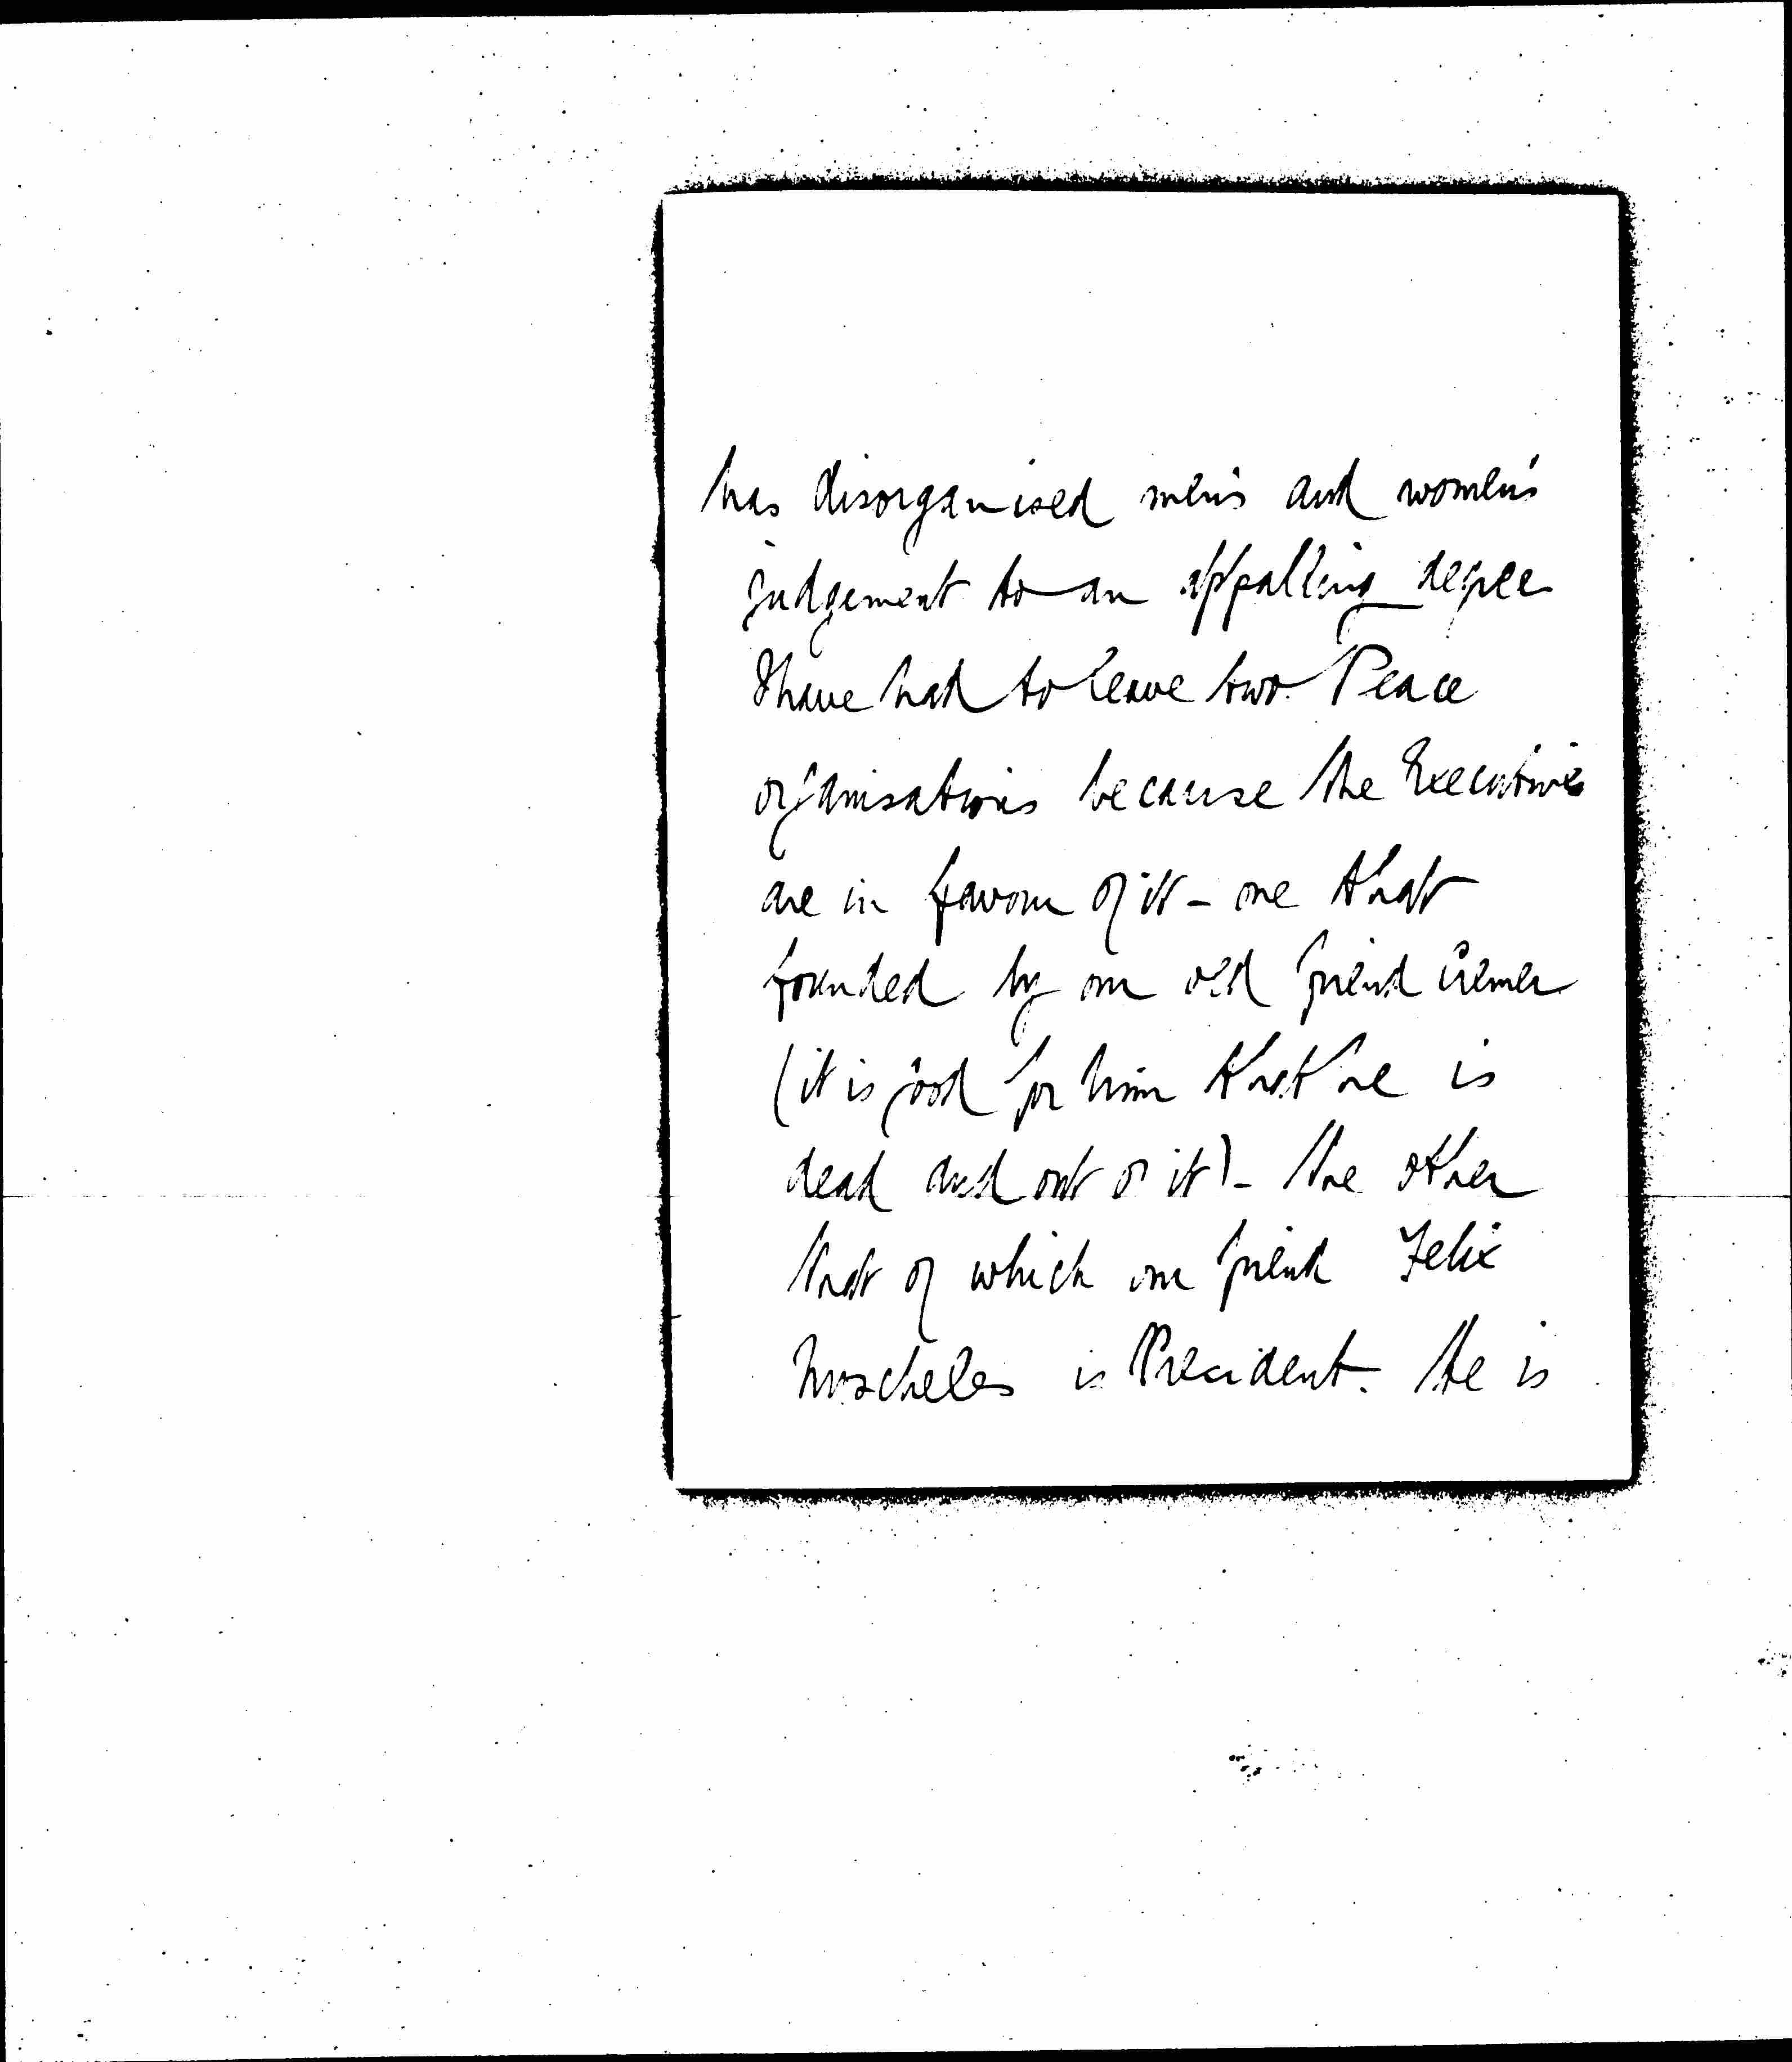 has disorganised men's and women's
judgement to an appalling degree
I have had to leave two Peace
organisations because the Executives
are in favour of it - one that
founded by our old friend Cremer
(it is good for him that he is
dead and out of it) - the other
that of which our friend Felix
Moscheles is President. He is